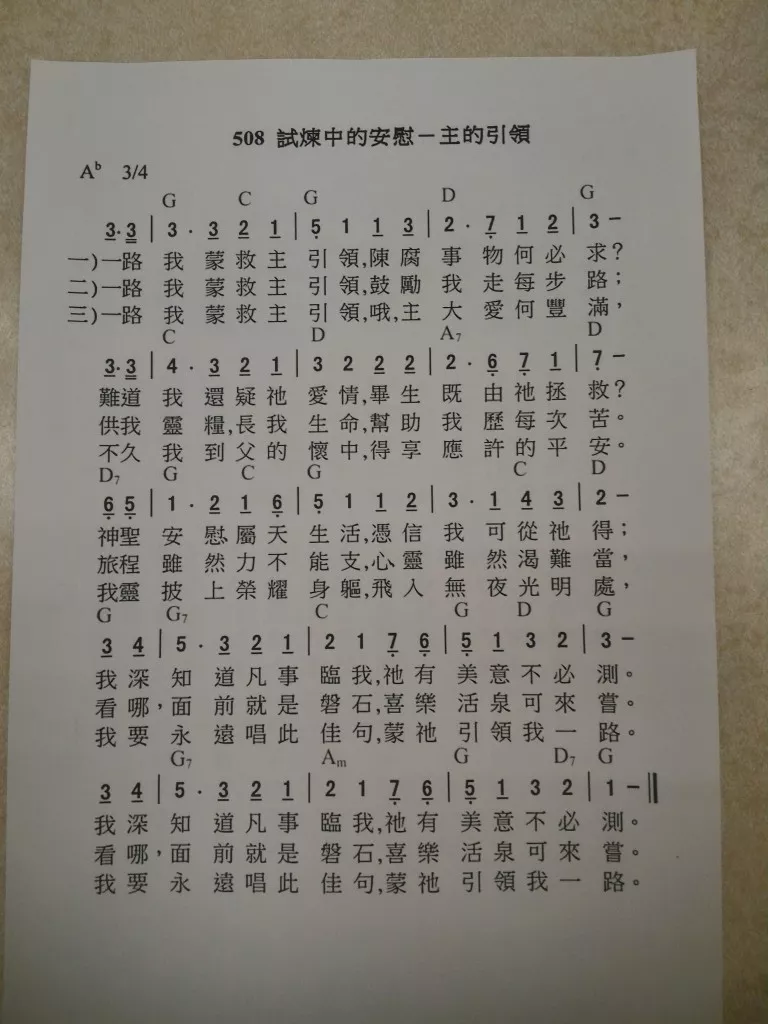 508 試煉中的安慰－主的引領
A♭ 3/4
G C G D G
3·3 | 3 · 3 2 1 | 5 1 1 3 | 2 · 7 1 2 | 3 –
一)一路 我 蒙救主 引領,陳腐 事 物何必 求？
二)一路 我 蒙救主 引領,鼓勵 我 走每步 路；
三)一路 我 蒙救主 引領,哦,主 大 愛何豐 滿，
C D A7 D
3·3 | 4 · 3 2 1 | 3 2 2 2 | 2 · 6 7 1 | 7 –
難道 我 還疑祂 愛情,畢生 既 由祂拯 救？
供我 靈 糧,長我 生命,幫助 我 歷每次 苦。
不久 我 到父的 懷中,得享 應 許的平 安。
D7 G C G C D
6 5 | 1 · 2 1 6 | 5 1 1 2 | 3 · 1 4 3 | 2 –
神聖 安 慰,屬天 生活,憑信 我 可從祂 得；
旅程 雖 然力不 能支,心靈 雖 然渴難 當，
我靈 披 上榮耀 身軀,飛入 無 夜光明 處，
G G7 C G D G
3 4 | 5 · 3 2 1 | 2 1 7 6 | 5 1 3 2 | 3 –
我深 知 道凡事 臨我,祂有 美意不必 測。
看哪，面 前就是 磐石,喜樂 活泉可來 嘗。
我要 永 遠唱此 佳句,蒙祂 引領我一 路。
G7 Am G D7 G
3 4 | 5 · 3 2 1 | 2 1 7 6 | 5 1 3 2 | 1 – ‖
我深 知 道凡事 臨我,祂有 美意不必 測。
看哪，面 前就是 磐石,喜樂 活泉可來 嘗。
我要 永 遠唱此 佳句,蒙祂 引領我一 路。